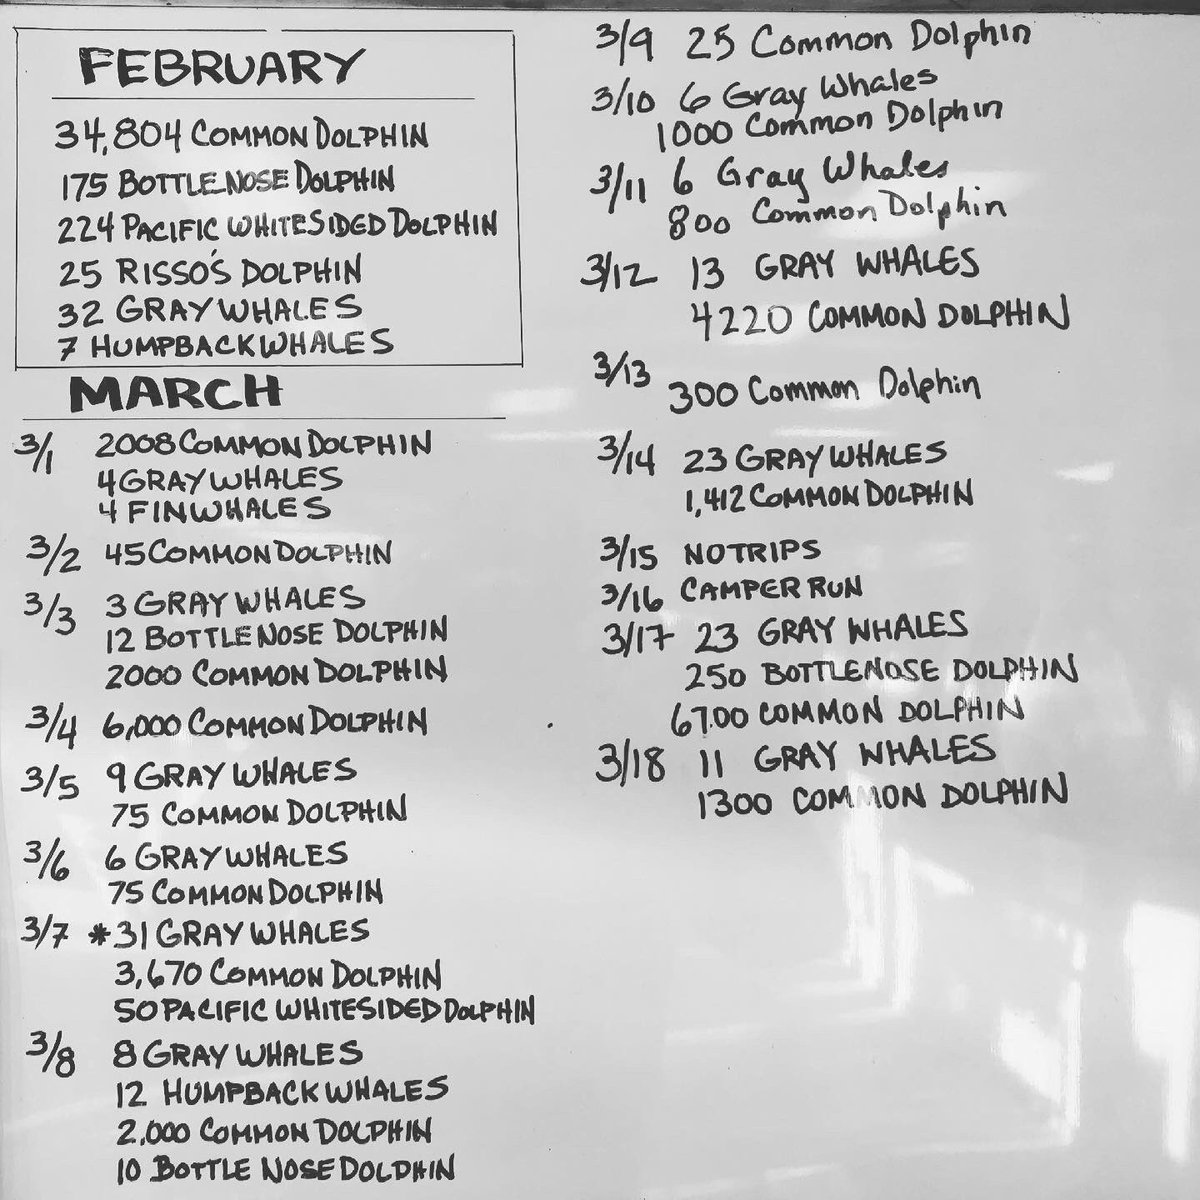 FEBRUARY
34,804 COMMON DOLPHIN
175 BOTTLENOSE DOLPHIN
224 PACIFIC WHITESIDED DOLPHIN
25 RISSO'S DOLPHIN
32 GRAY WHALES
7 HUMPBACK WHALES
MARCH
3/1 2008 COMMON DOLPHIN
4 GRAY WHALES
4 FIN WHALES
3/2 45 COMMON DOLPHIN
3/3 3 GRAY WHALES
12 BOTTLE NOSE DOLPHIN
2000 COMMON DOLPHIN
3/4 6,000 COMMON DOLPHIN
3/5 9 GRAY WHALES
75 COMMON DOLPHIN
3/6 6 GRAY WHALES
75 COMMON DOLPHIN
3/7 *31 GRAY WHALES
3,670 COMMON DOLPHIN
50 PACIFIC WHITESIDED DOLPHIN
3/8 8 GRAY WHALES
12 HUMPBACK WHALES
2,000 COMMON DOLPHIN
10 BOTTLE NOSE DOLPHIN
3/9 25 Common Dolphin
3/10 6 Gray Whales
1000 Common Dolphin
3/11 6 Gray Whales
800 Common Dolphin
3/12 13 GRAY WHALES
4220 COMMON DOLPHIN
3/13
300 Common Dolphin
3/14 23 GRAY WHALES
1,412 COMMON DOLPHIN
3/15 NO TRIPS
3/16 CAMPER RUN
3/17 23 GRAY WHALES
250 BOTTLENOSE DOLPHIN
6700 COMMON DOLPHIN
3/18 11 GRAY WHALES
1300 COMMON DOLPHIN